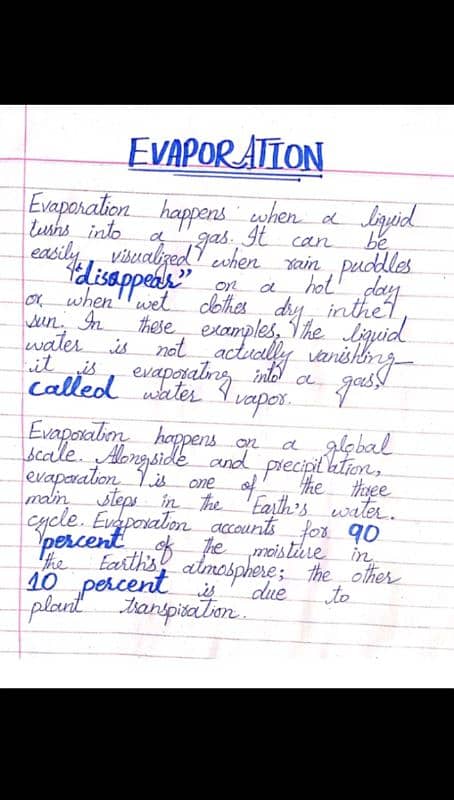 EVAPORATION
Evaporation happens when a liquid
turns into a gas. It can be
easily visualized when rain puddles
"disappear" on a hot day
or when wet clothes dry in the
sun. In these examples, the liquid
water is not actually vanishing
it is evaporating into a gas,
called water vapor.
Evaporation happens on a global
scale. Alongside and precipitation,
evaporation is one of the three
main steps in the Earth's water.
cycle. Evaporation accounts for 90
percent of the moisture in
the Earth's atmosphere; the other
10 percent is due to
plant transpiration.